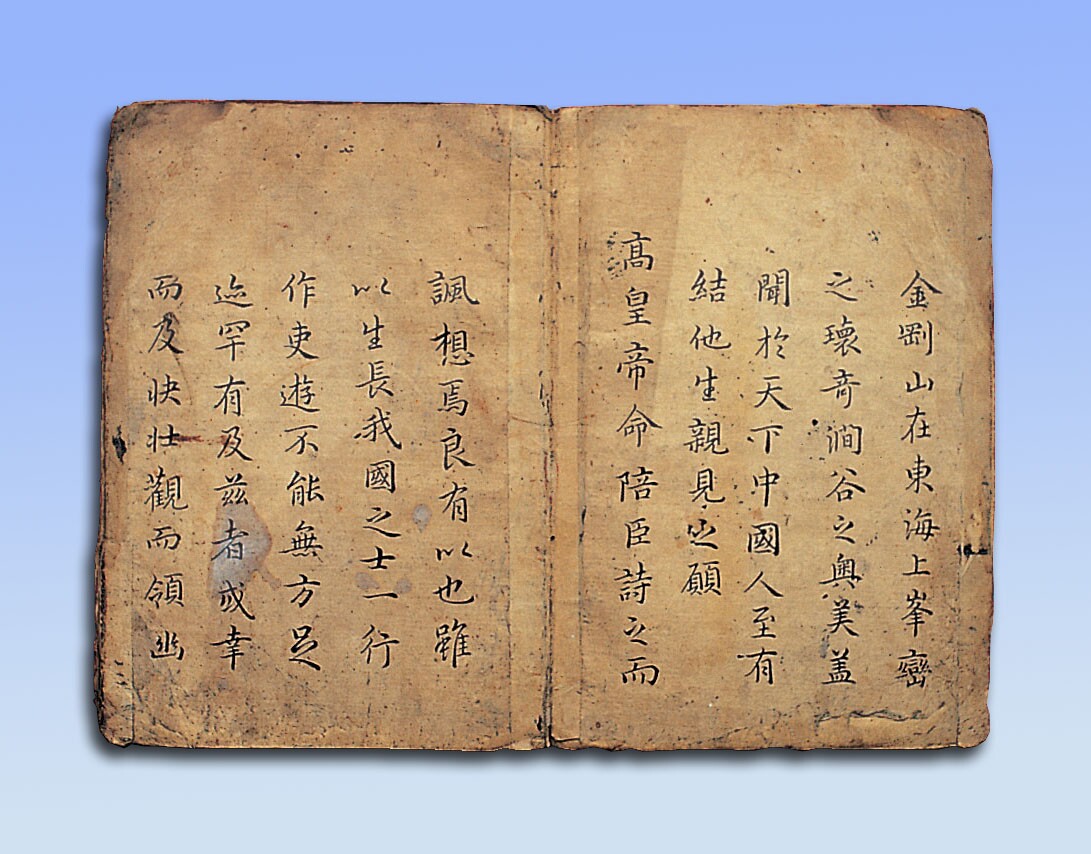 金剛山在東海上峯巒
之瓌竒澗谷之奧美盖
聞於天下中國人至有
結他生親見之願
高皇帝命陪臣詩之而
諷想焉良有以也雖
以生長我國之士一行
作吏遊不能無方足
迹罕有及兹者或幸
而及快壯觀而領幽